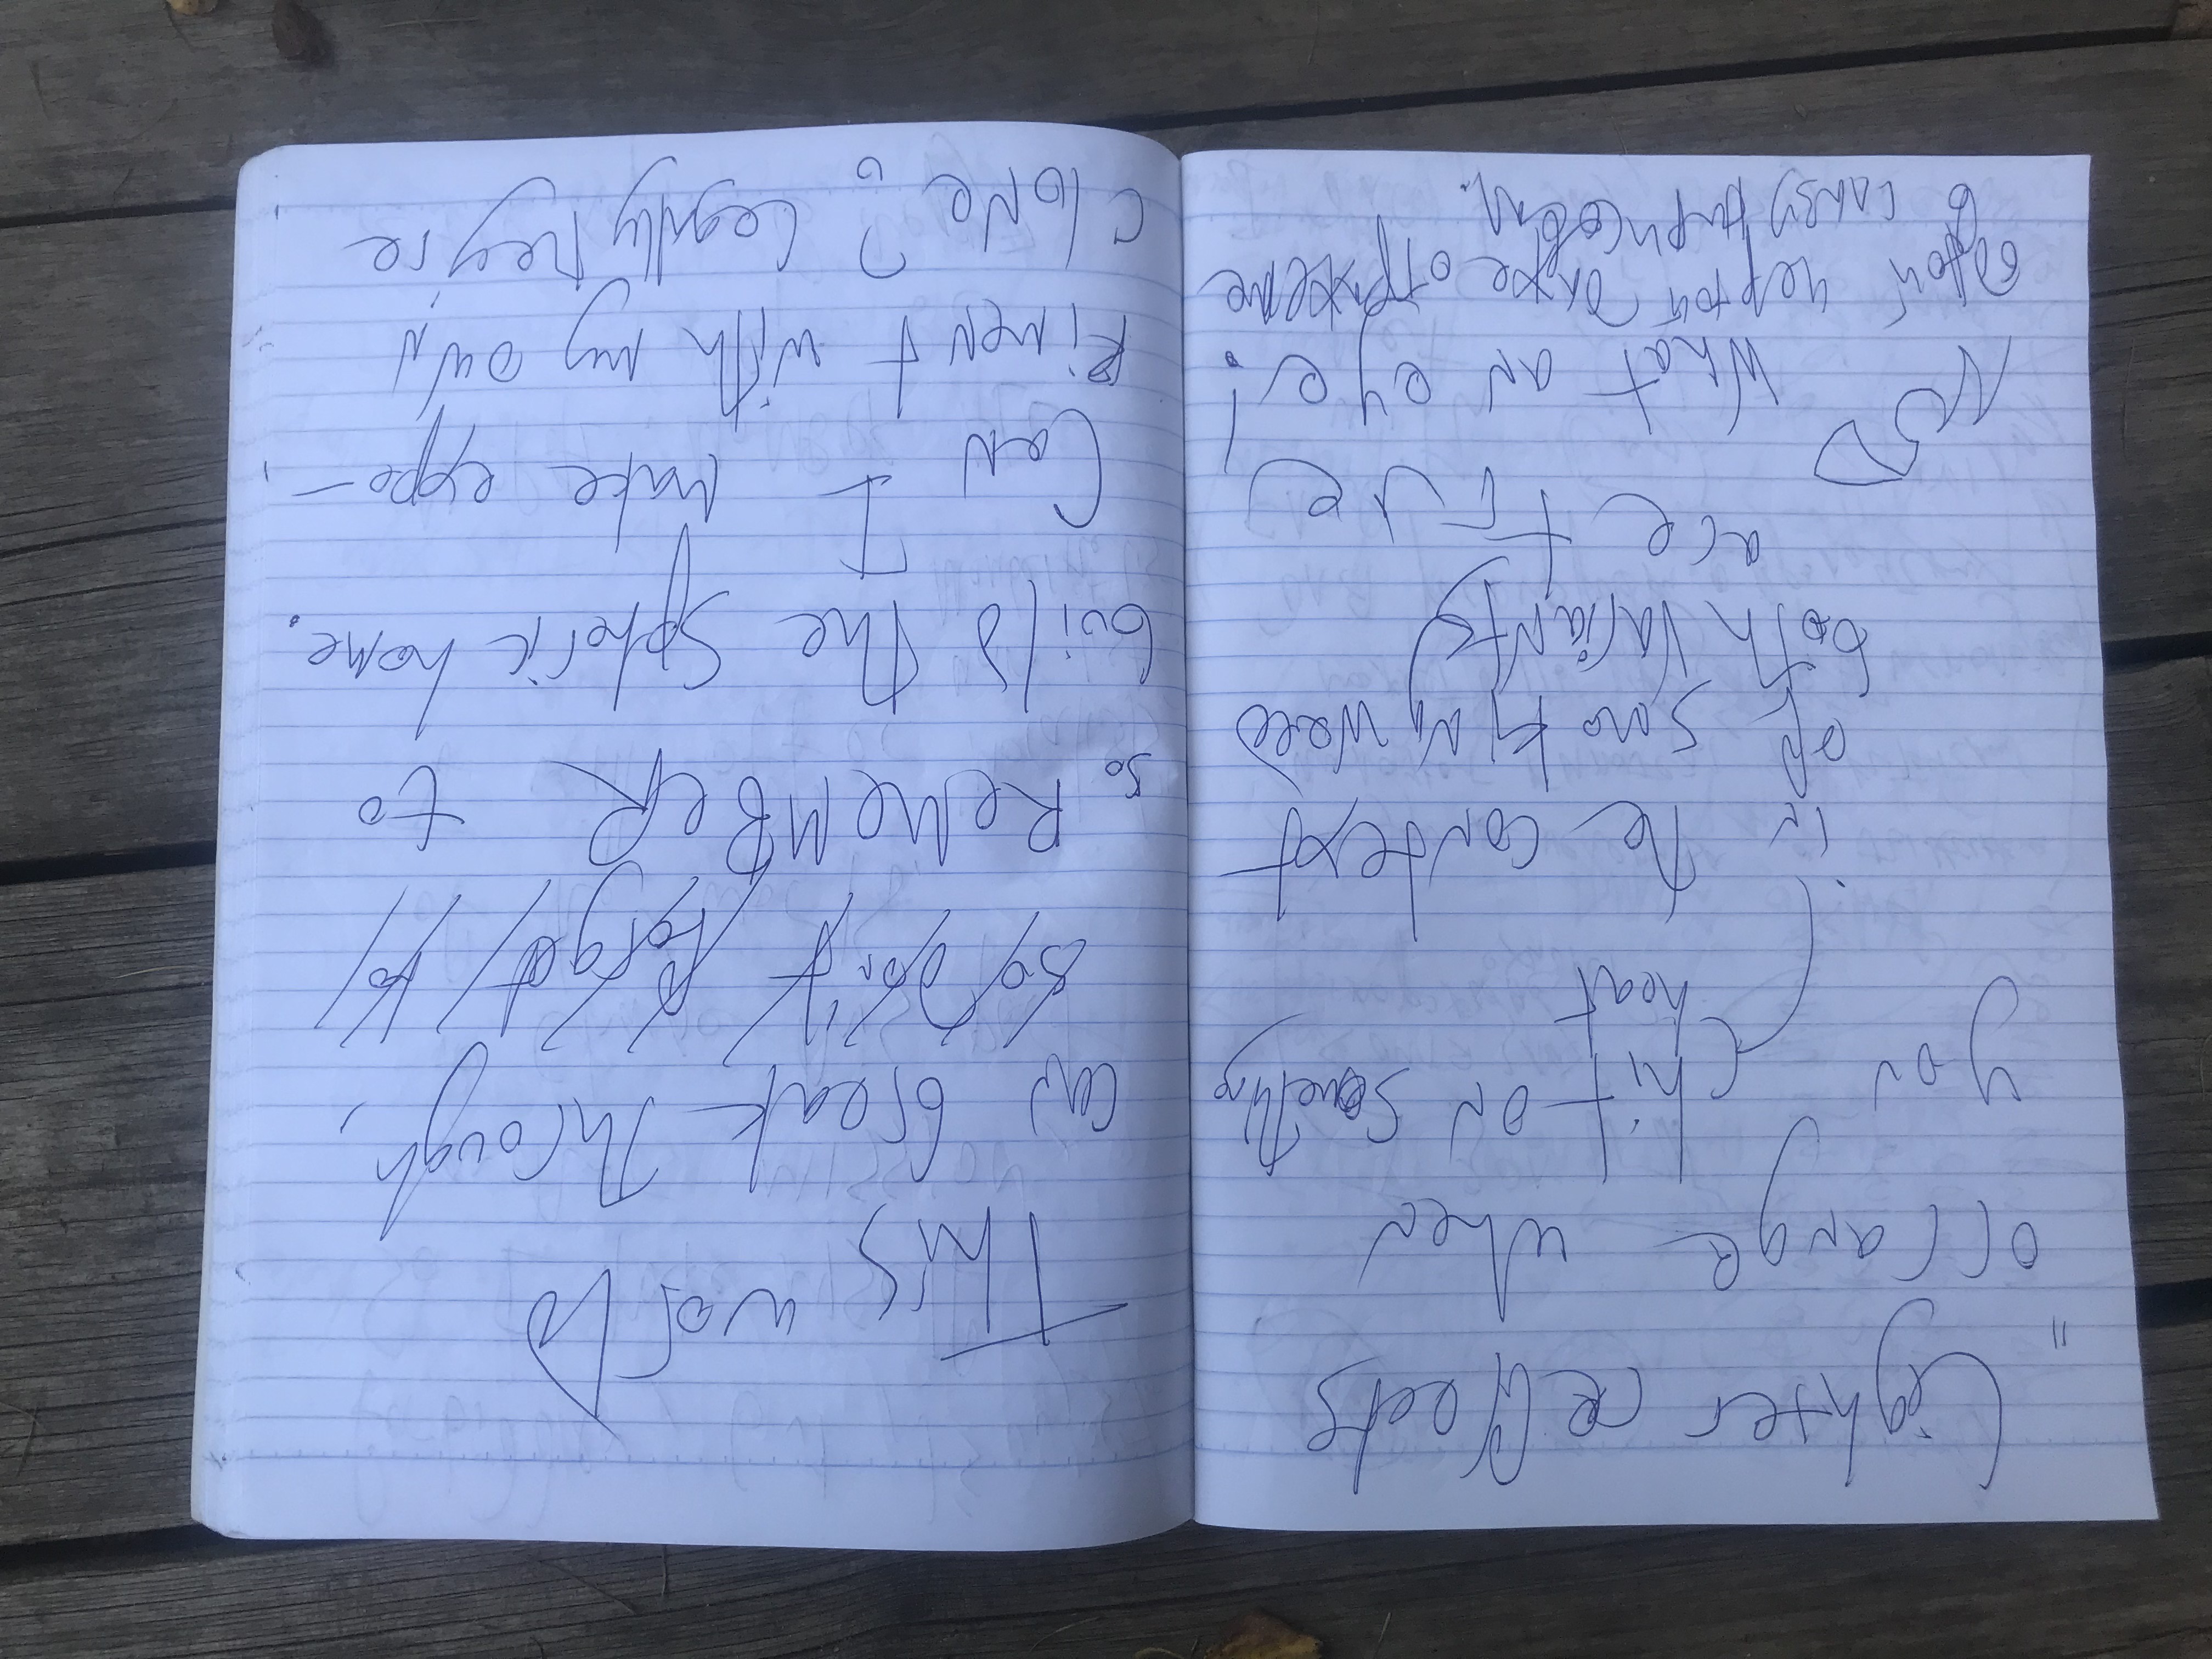 Lighter reflects
"
orrange when
you hit on something
heat
in the context
of smoking weed
both variants
are true
What an eye!
одной чертой даже отражение
в глазу нарисовал.
This world
can break through,
so don't forget to
so REMEMBER to
build the spheric home.
Can I make expe-
Riment with my own
clone? Legally they're